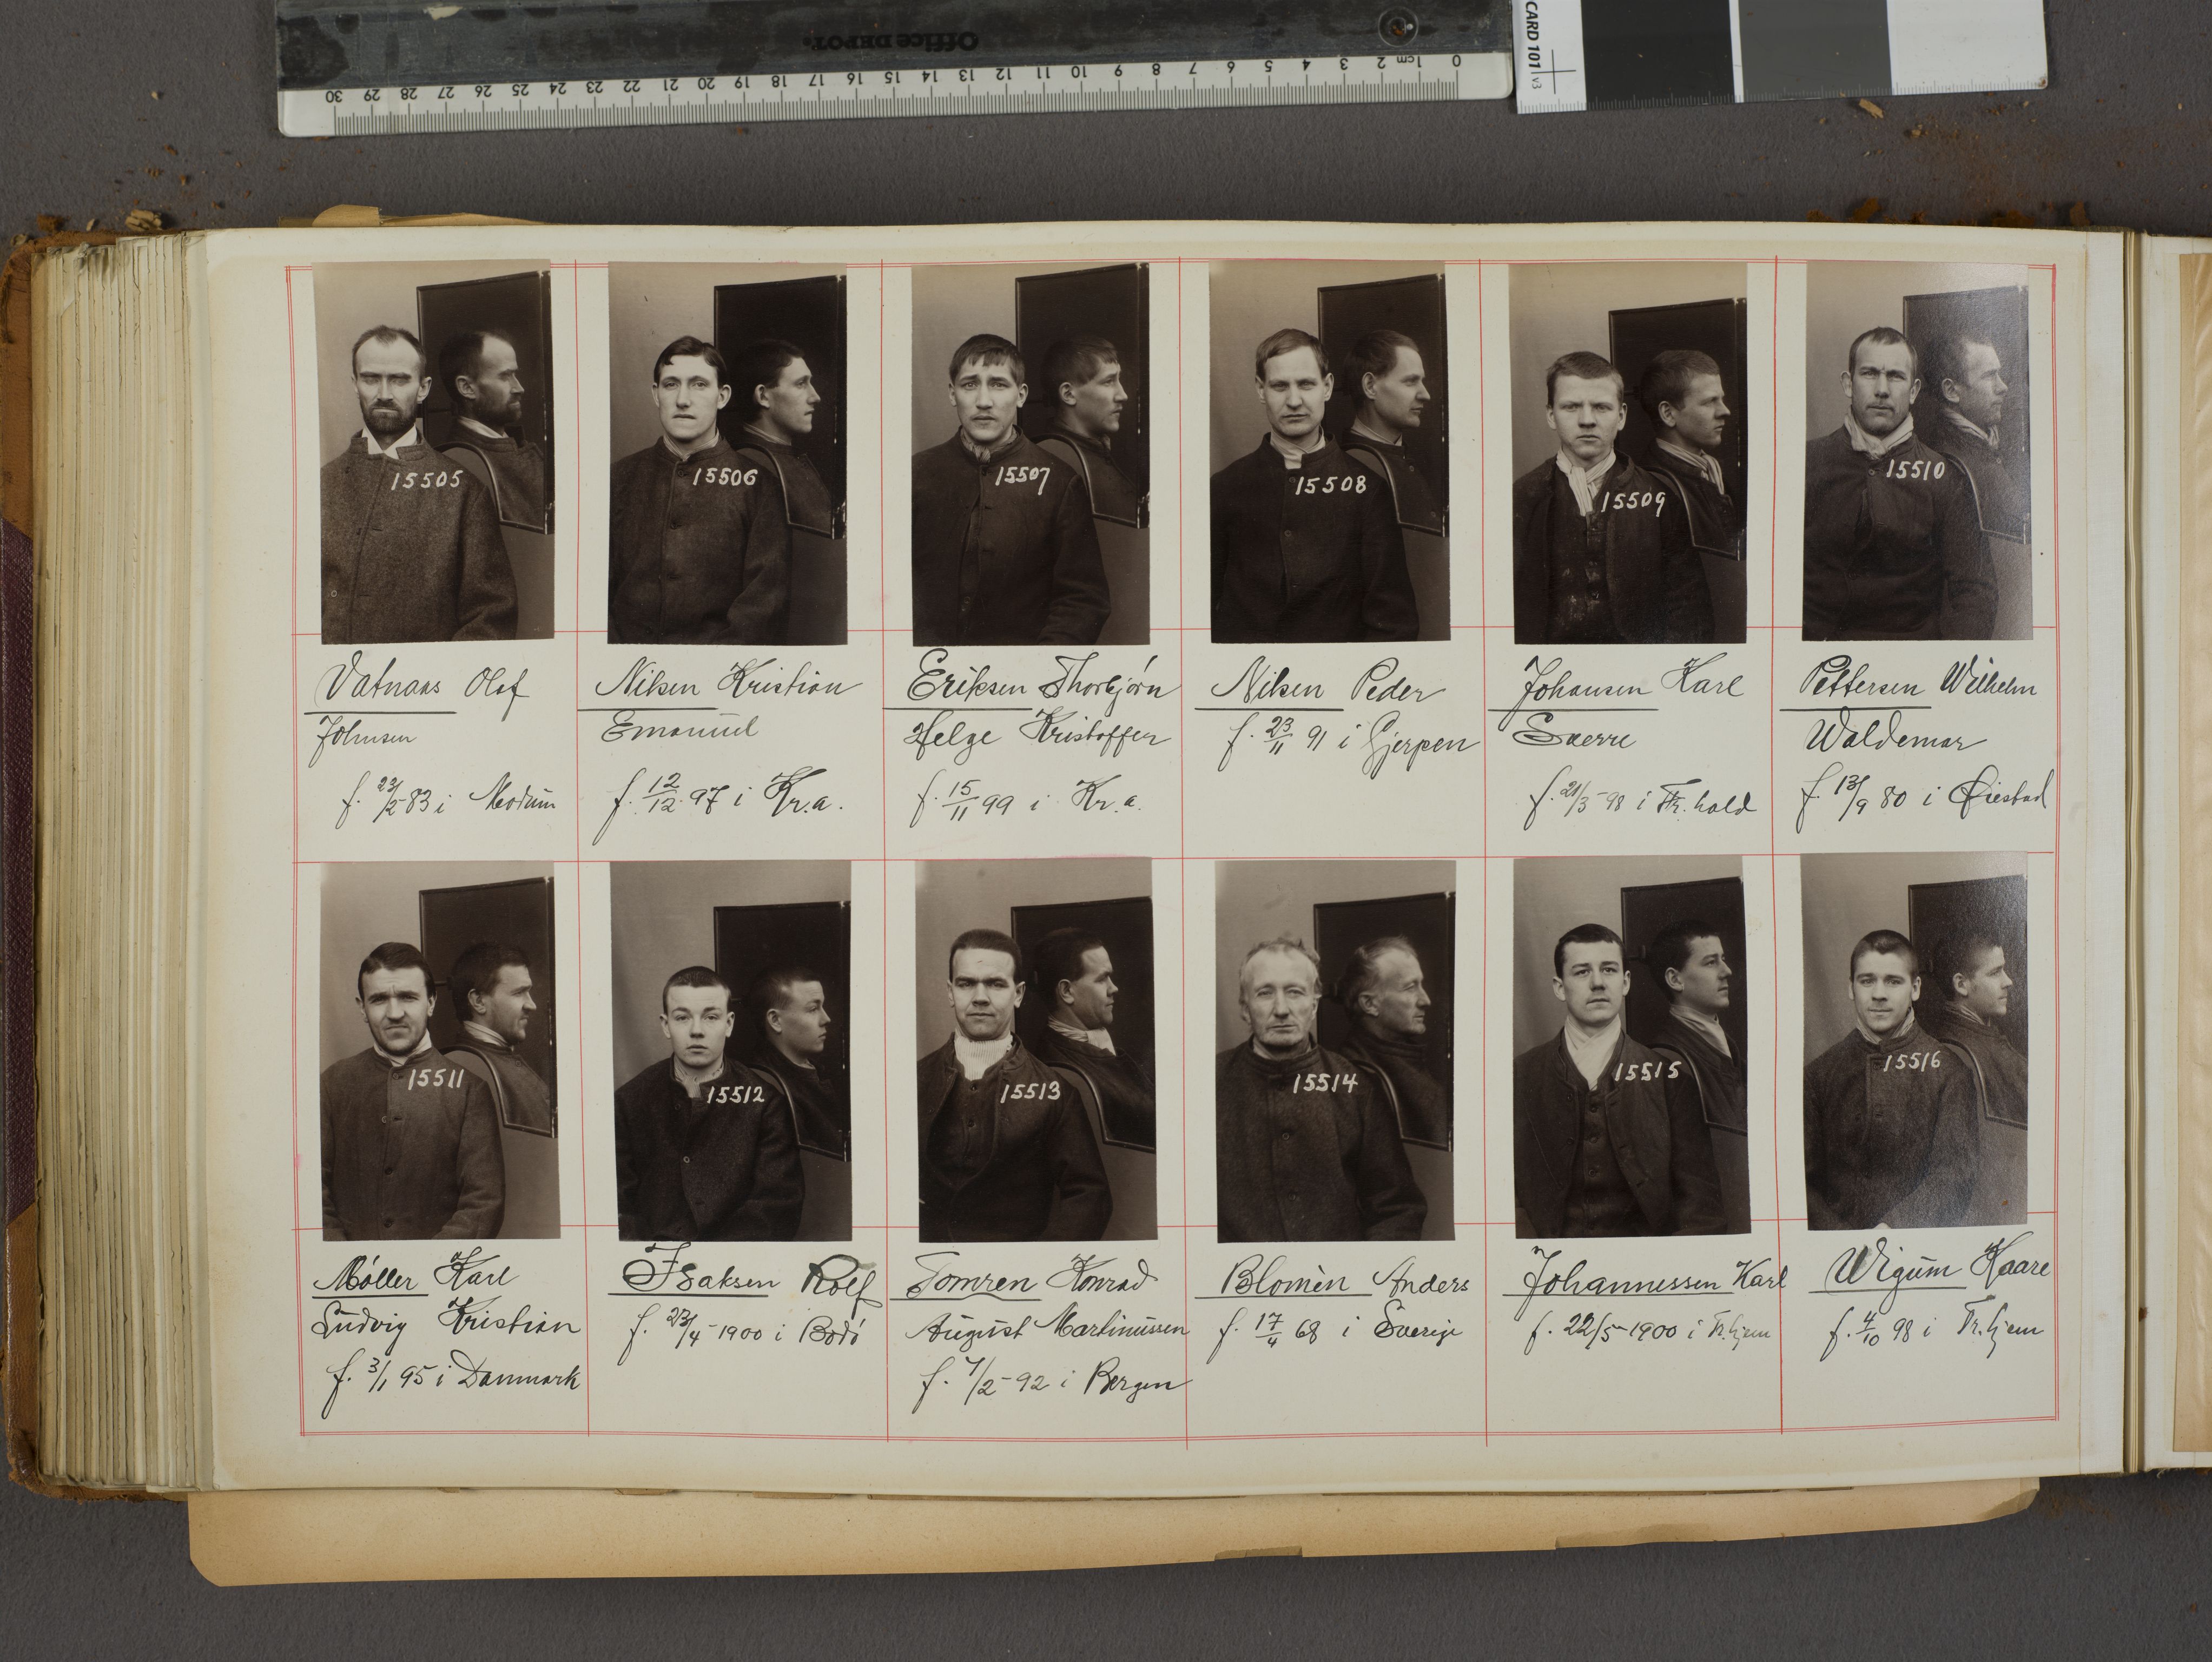 Office DEPOT.
0 1cm 2 3 4 5 6 7 8 9 10 11 12 13 14 15 16 17 18 19 20 21 22 23 24 25 26 27 28 29 30
CARD 101 v3
15505
15506
15507
15508
15509
15510
Vatnaas Olaf
Johnsen
f. 23/2-83 i Modum
Nilsen Kristian
Emanuel
f. 12/12 97 i Kr.a.
Eriksen Thorbjørn
Helge Kristoffer
f. 15/11 99 i Kr.a.
Nilsen Peder
f. 23/11 91 i Gjerpen
Johansen Karl
Sverre
f. 21/3-98 i Fr.hald
Pettersen Wilhelm
Waldemar
f. 13/9 80 i Øiestad
15511
15512
15513
15514
15515
15516
Møller Karl
Ludvig Kristian
f. 3/1 95 i Danmark
Isaksen Rolf
f. 23/4-1900 i Bodø
Tomren Konrad
August Martinussen
f. 7/2-92 i Bergen
Blomèn Anders
f. 17/4 68 i Sverige
Johannessen Karl
f. 22/5-1900 i Tr.hjem
Wigum Kaare
f. 4/10 98 i Tr.hjem